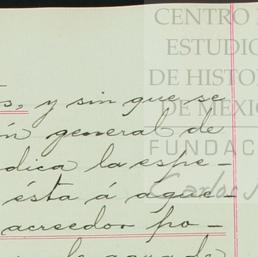 CENTRO
ESTUDIO
DE HISTOR
DE MÉXICO
FUNDAC
Carlos
s, y sin que se
ón general de
dica la espe-
ésta á aque-
acreedor po-